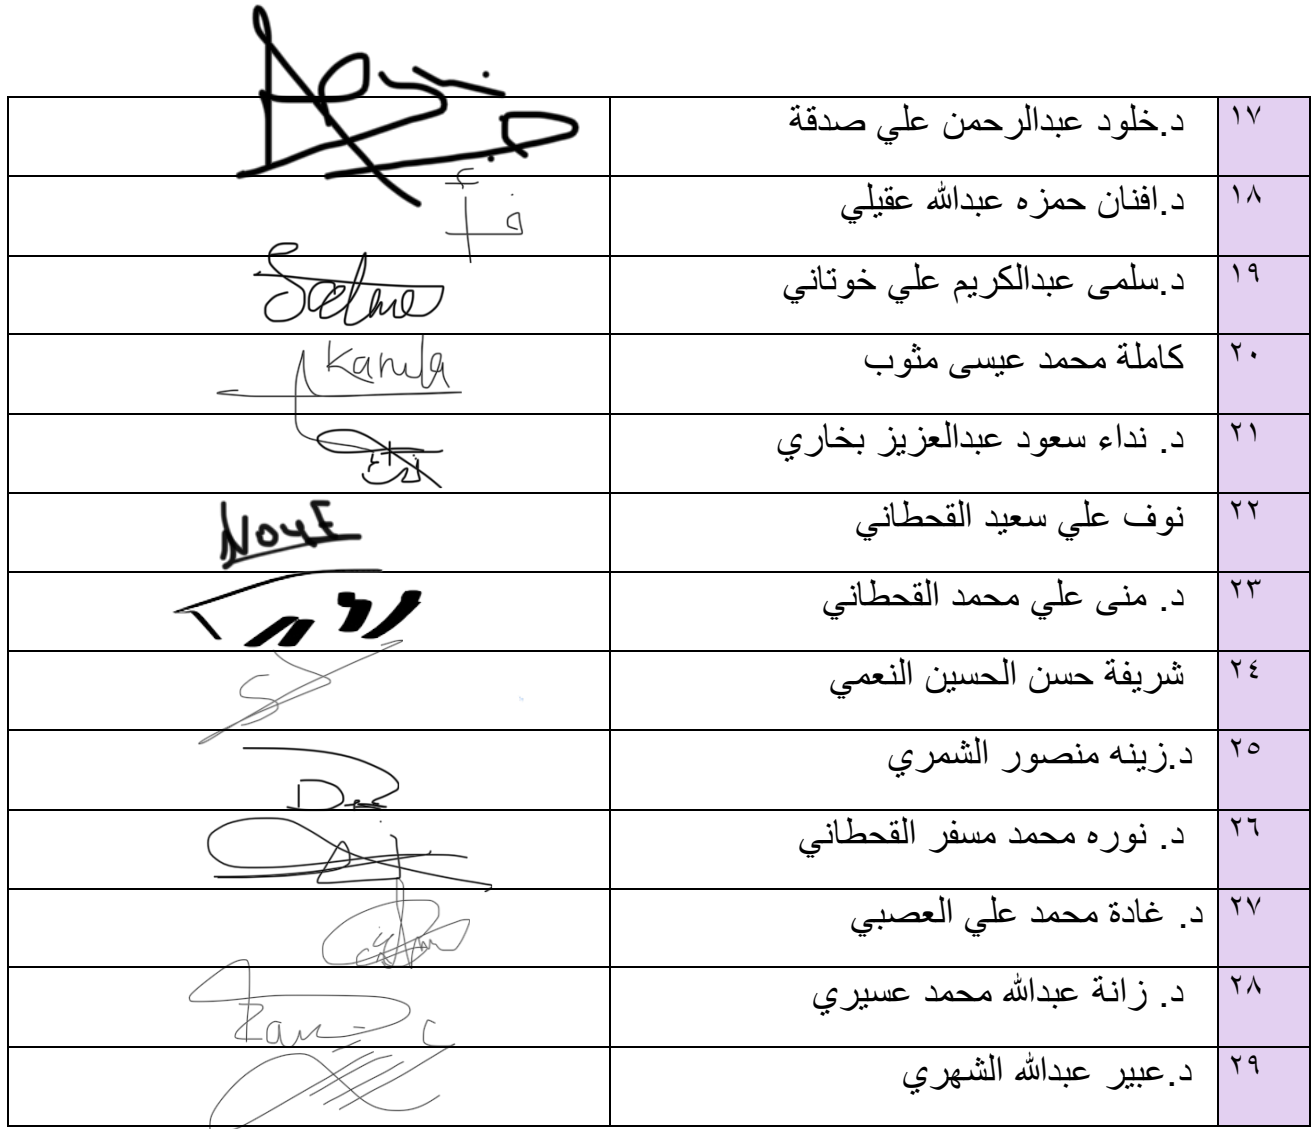 ١٧ د.خلود عبدالرحمن علي صدقة
١٨ د.افنان حمزه عبدالله عقيلي
١٩ د.سلمى عبدالكريم علي خوتاني Salma
٢٠ كاملة محمد عيسى مثوب Kamla
٢١ د. نداء سعود عبدالعزيز بخاري
٢٢ نوف علي سعيد القحطاني Nouf
٢٣ د. منى علي محمد القحطاني
٢٤ شريفة حسن الحسين النعمي
٢٥ د.زينه منصور الشمري
٢٦ د. نوره محمد مسفر القحطاني
٢٧ د. غادة محمد علي العصبي
٢٨ د. زانة عبدالله محمد عسيري
٢٩ د.عبير عبدالله الشهري